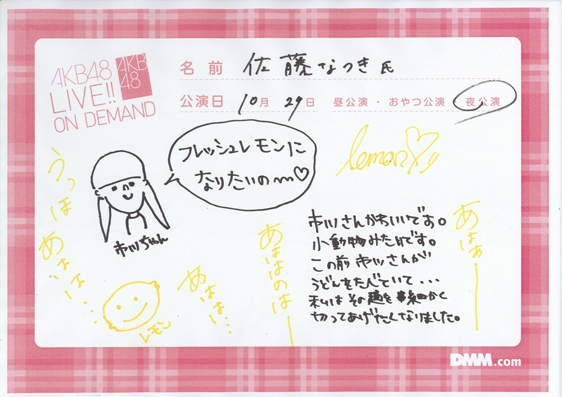 AKB48
LIVE!!
ON DEMAND
AKB
48
名前 佐藤なつき氏
公演日 10月29日 昼公演・おやつ公演・夜公演
フレッシュレモンに
なりたいの〜♡
lemon♡
市川ちゃん
うっほ
あはは…
レモン
あはは…
あはのはー
あはぁー
市川さんかわいいです。
小動物みたいです。
この前市川さんが
うどんをたべていて...
私はその麺を事細かく
切ってあげたくなりました。
DMM.com